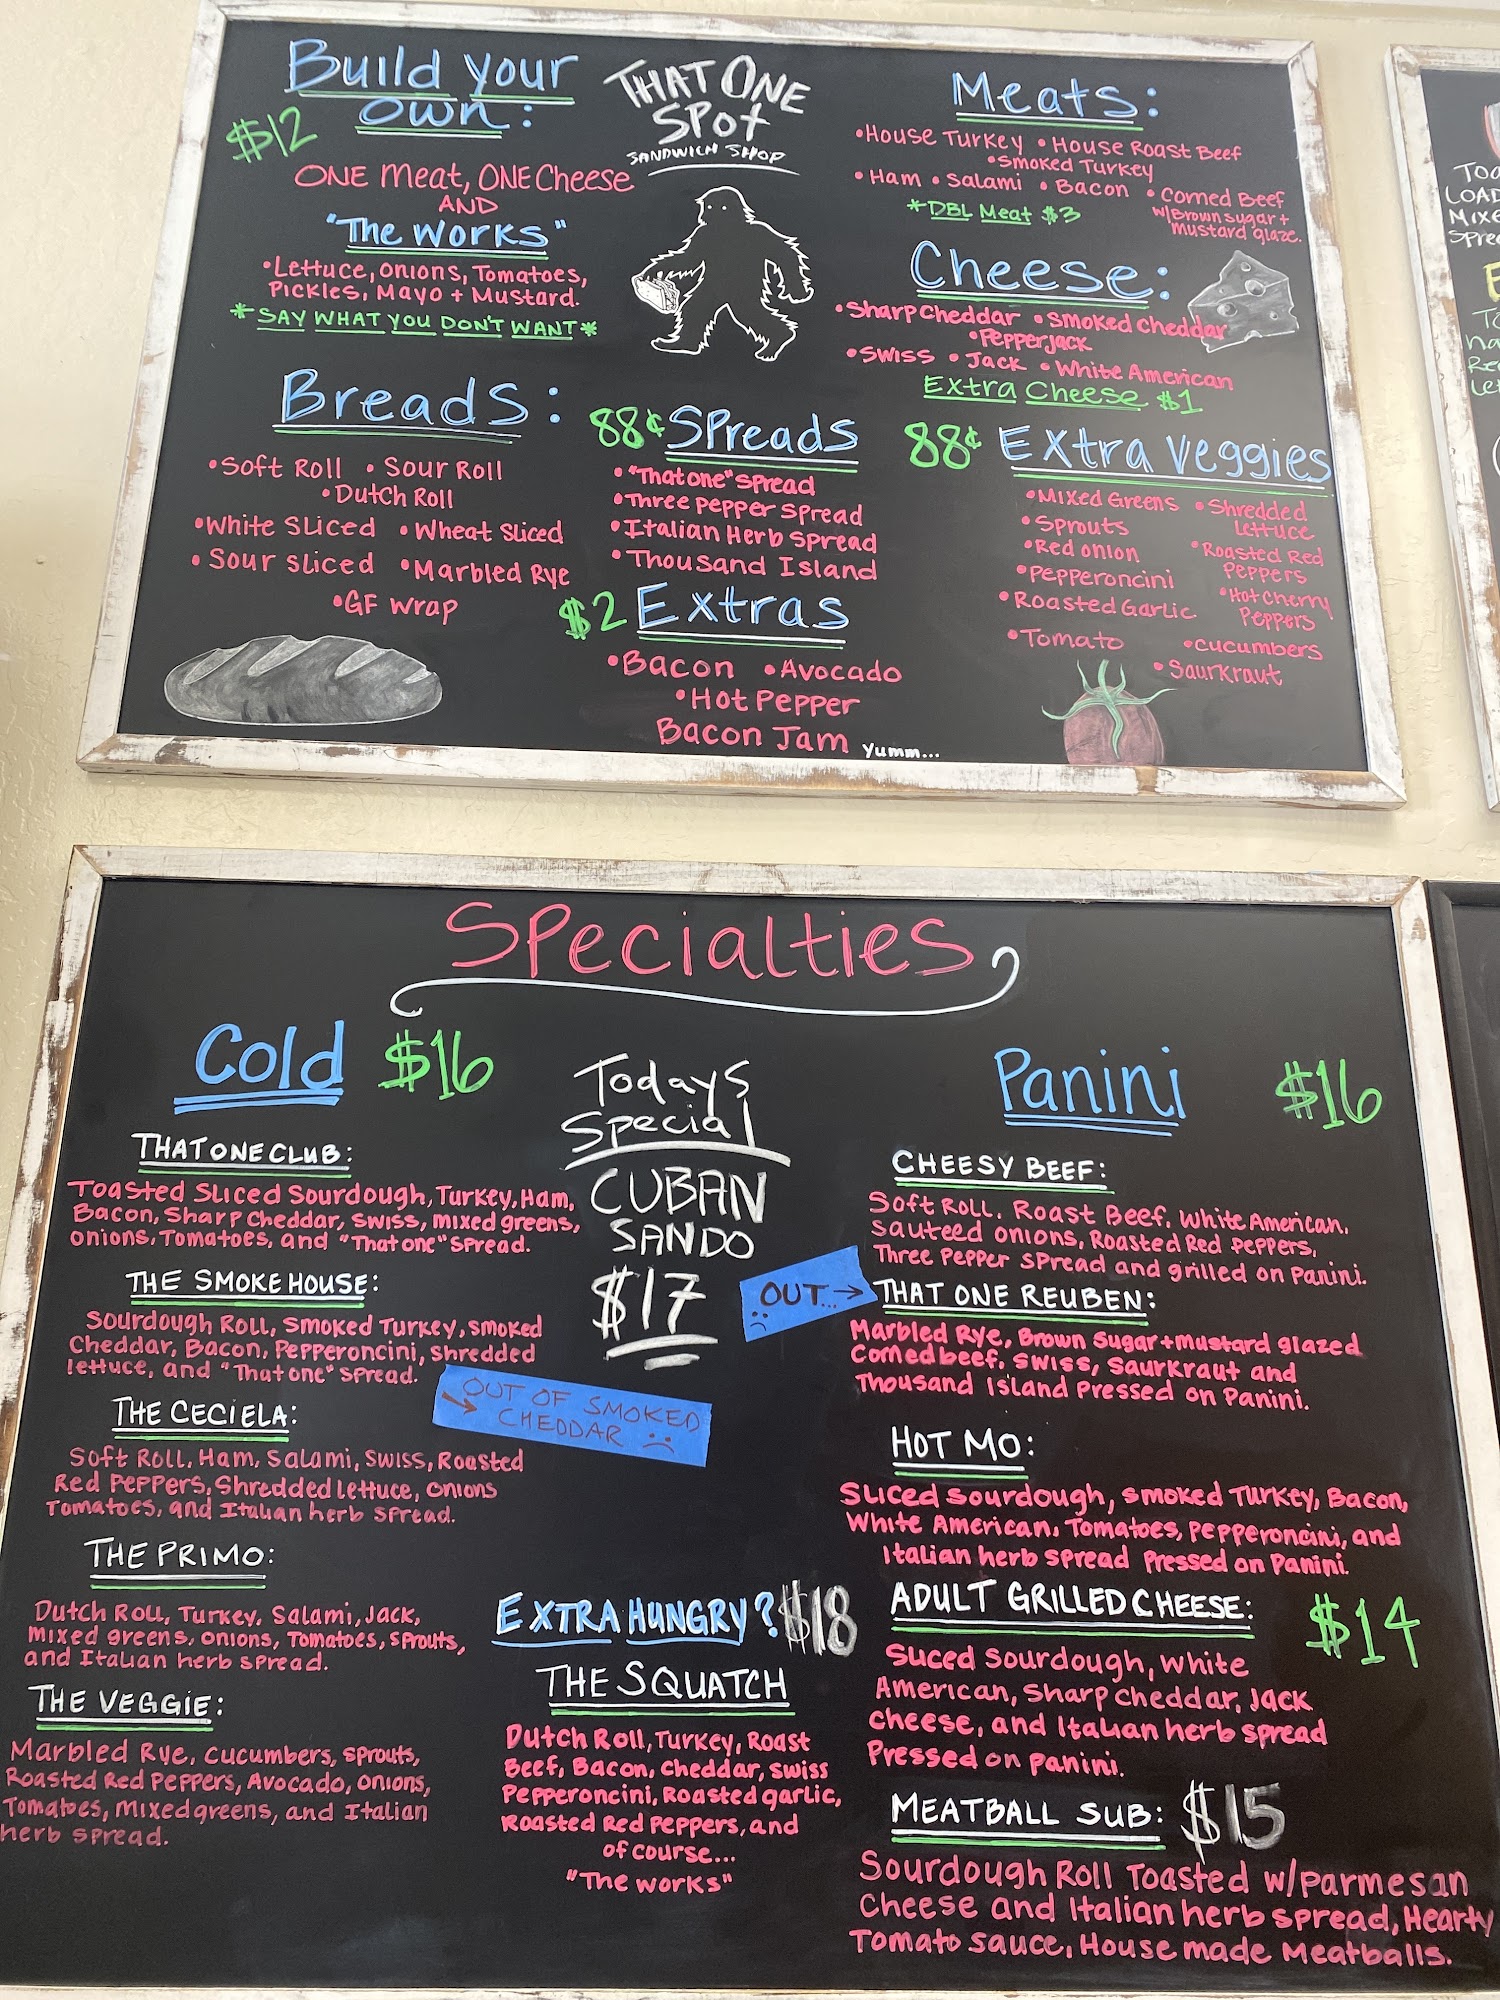 Build your
own:
$12
ONE Meat, ONE Cheese
AND
"The Works"
•Lettuce, onions, Tomatoes,
Pickles, Mayo + Mustard.
*SAY WHAT YOU DON'T WANT*
THAT ONE
SPOT
SANDWICH SHOP
Meats:
•House Turkey •House Roast Beef
•Smoked Turkey
•Ham •Salami •Bacon •Corned Beef
w/Brown sugar +
mustard glaze.
*DBL Meat $3
Cheese:
•Sharp Cheddar •Smoked Cheddar
•Pepperjack
•Swiss •Jack •White American
Extra Cheese $1
Breads:
•Soft Roll •Sour Roll
•Dutch Roll
•White Sliced •Wheat Sliced
•Sour sliced •Marbled Rye
•GF Wrap
88¢ Spreads
•"That one" Spread
•Three Pepper Spread
•Italian Herb Spread
•Thousand Island
$2 Extras
•Bacon •Avocado
•Hot Pepper
Bacon Jam Yumm...
88¢ Extra Veggies
•Mixed Greens •Shredded
Lettuce
•Sprouts
•Red onion •Roasted Red
Peppers
•Pepperoncini
•Hot Cherry
Peppers
•Roasted Garlic
•Tomato •cucumbers
•Saurkraut
Specialties
Cold $16
THAT ONE CLUB:
Toasted Sliced Sourdough, Turkey, Ham,
Bacon, Sharp Cheddar, Swiss, mixed greens,
onions, Tomatoes, and "That one" Spread.
THE SMOKE HOUSE:
Sourdough Roll, Smoked Turkey, Smoked
Cheddar, Bacon, Pepperoncini, shredded
lettuce, and "That one" Spread.
OUT OF SMOKED
CHEDDAR
THE CECIELA:
Soft Roll, Ham, Salami, Swiss, Roasted
Red Peppers, Shredded lettuce, onions
Tomatoes, and Italian herb Spread.
THE PRIMO:
Dutch Roll, Turkey, Salami, Jack,
mixed greens, onions, Tomatoes, Sprouts,
and Italian herb spread.
THE VEGGIE:
Marbled Rye, cucumbers, sprouts,
Roasted Red Peppers, Avocado, onions,
Tomatoes, mixed greens, and Italian
herb spread.
Todays
Special
CUBAN
SANDO
$17
EXTRA HUNGRY? $18
THE SQUATCH
Dutch Roll, Turkey, Roast
Beef, Bacon, cheddar, swiss
Pepperoncini, Roasted garlic,
Roasted Red Peppers, and
of course...
"The works"
Panini $16
CHEESY BEEF:
Soft Roll, Roast Beef, White American,
sauteed onions, Roasted Red Peppers,
Three Pepper Spread and grilled on Panini.
OUT...→
THAT ONE REUBEN:
Marbled Rye, Brown Sugar+mustard glazed
Corned beef, Swiss, Saurkraut and
Thousand Island Pressed on Panini.
HOT MO:
Sliced sourdough, smoked Turkey, Bacon,
White American, Tomatoes, Pepperoncini, and
Italian herb Spread Pressed on Panini.
ADULT GRILLED CHEESE: $14
Sliced Sourdough, White
American, Sharp Cheddar, Jack
cheese, and Italian herb spread
Pressed on panini.
MEATBALL SUB: $15
Sourdough Roll Toasted w/Parmesan
Cheese and Italian herb spread, Hearty
Tomato sauce, House made Meatballs.
LOAD